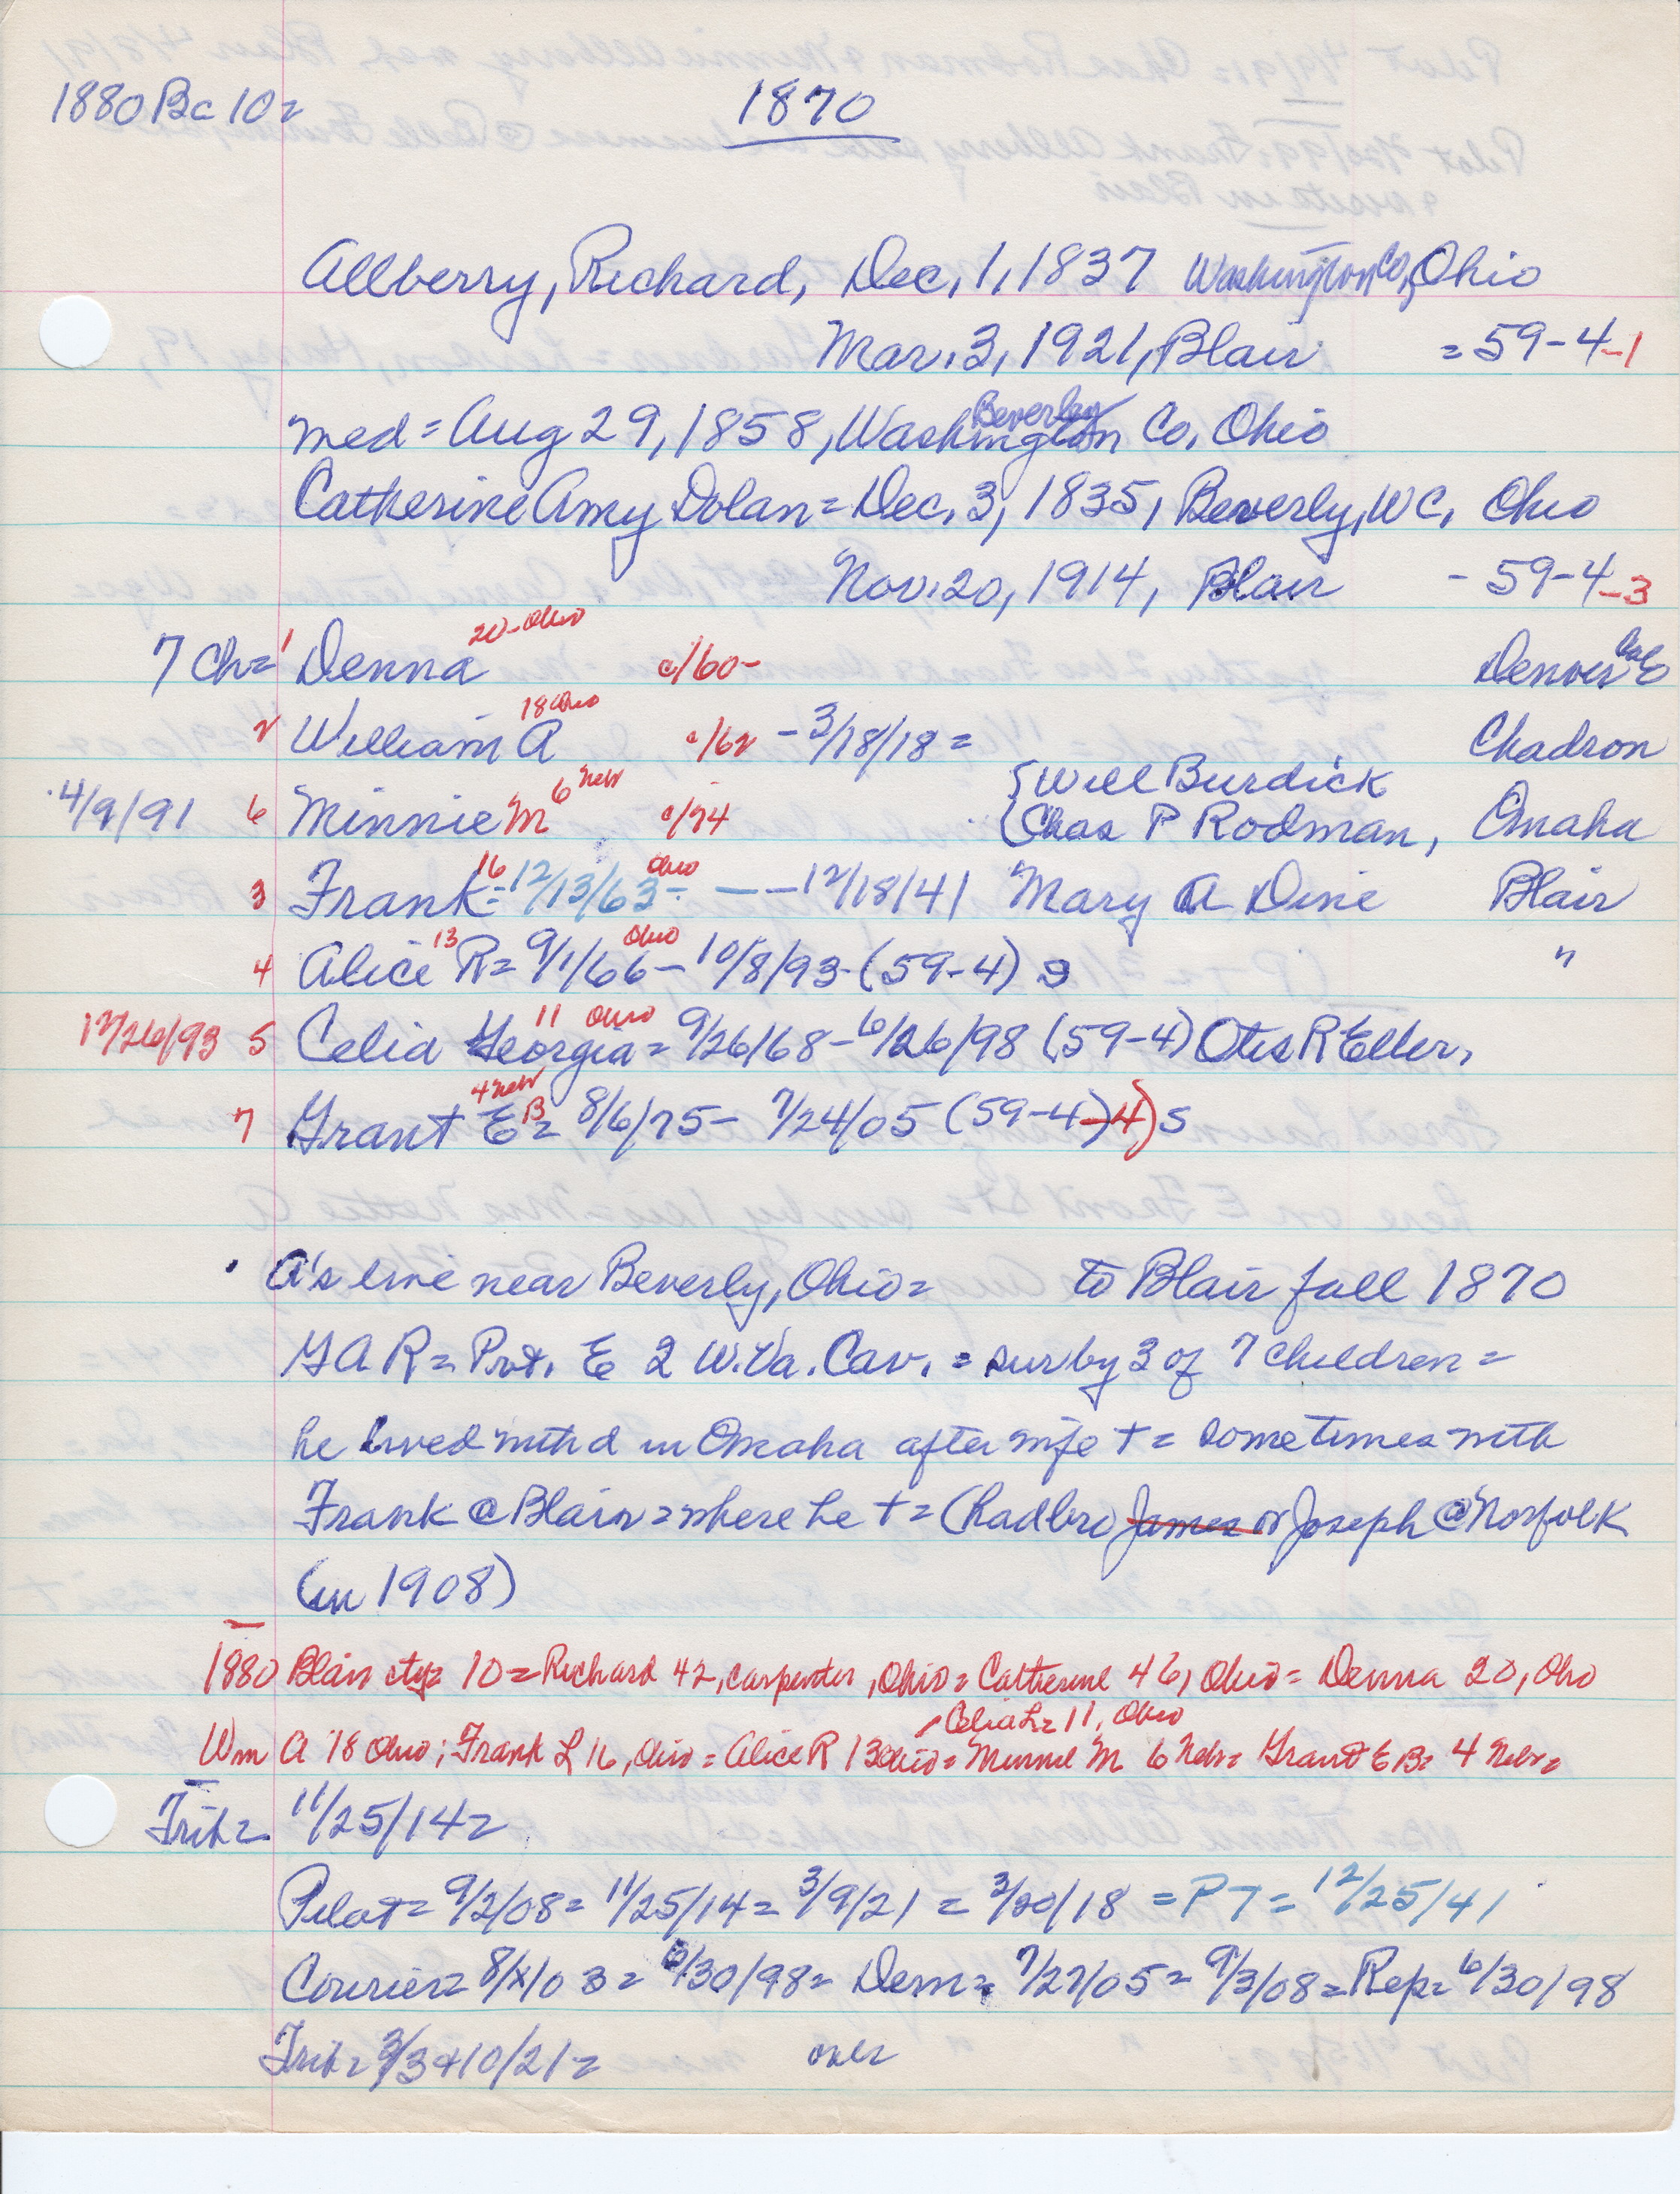 1880 Bc 10=
1870
Allberry, Richard, Dec, 1, 1837 Washington Co, Ohio
Mar. 3, 1921, Blair = 59-4-1
Beverly
med = Aug 29, 1858, Washington Co, Ohio
Catherine Amy Dolan = Dec, 3, 1835, Beverly, WC, Ohio
Nov. 20, 1914, Blair - 59-4-3
20-Ohio
7 Ch = 1 Denna c/60- Denver Colo
18 Ohio
2 William A c/62 - 3/18/18 = Chadron
{Will Burdick
6 Nebr
4/9/91 6 Minnie M c/74 {Chas P Rodman, Omaha
16 Ohio
3 Frank = 12/13/63 - - 12/18/41 Mary A Dine Blair
13 Ohio
4 Alice R = 9/1/66 - 10/8/93 - (59-4) s "
11 Ohio
12/26/93 5 Celia Georgia = 9/26/68 - 6/26/98 (59-4) Otis R Eller,
4 Nebr
7 Grant E B = 8/6/75 - 7/24/05 (59-4-4) s
A's live near Beverly, Ohio = to Blair fall 1870
GAR = Pvt. E 2 W. Va. Cav. = sur by 3 of 7 children =
he lived with d in Omaha after wife + = sometimes with
Frank @ Blair = where he + = (had bro James or Joseph @ Norfolk
(in 1908)
1880 Blair cty = 10 = Richard 42, carpenter, Ohio = Catherine 46, Ohio = Denna 20, Oho
Celia L = 11, Ohio
Wm A 18 Ohio; Frank L 16, Ohio = Alice R 13 Ohio = Minnie M 6 Nebr = Grant E B = 4 Nebr =
Trib = 11/25/14 =
Pilot = 9/2/08 = 11/25/14 = 3/9/21 = 3/20/18 = P T = 12/25/41
Courier = 8/x/03 = 6/30/98 = Dem = 7/27/05 = 9/3/08 = Rep = 6/30/98
Trib = 3/3+10/21 = over